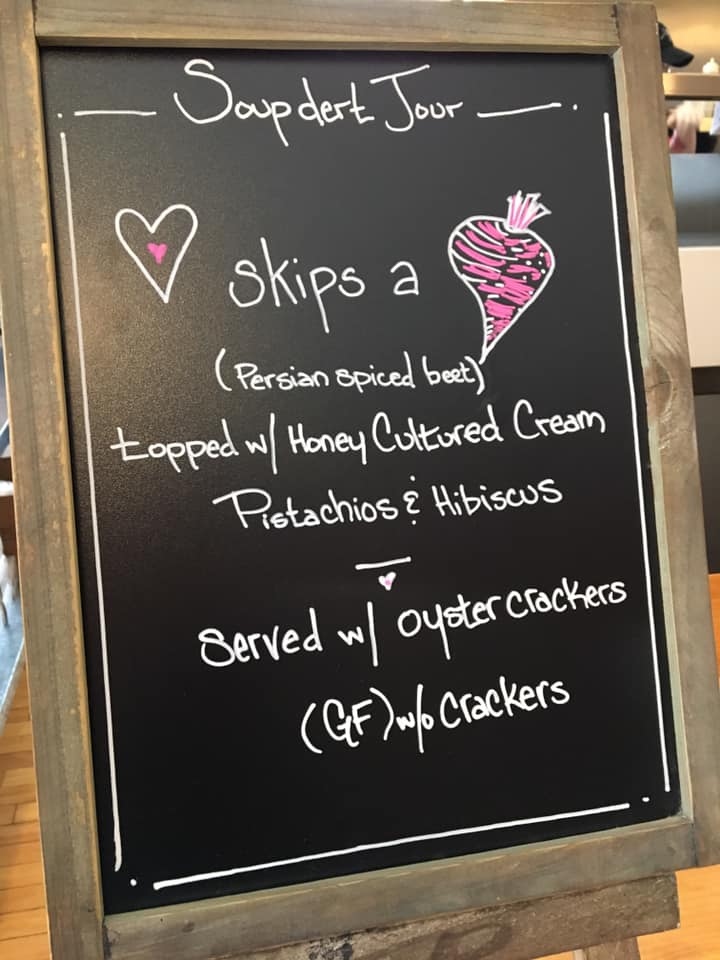 Soup dert Jour
skips a
(Persian spiced beet)
topped w/ Honey Cultured Cream
Pistachios & Hibiscus
Served w/ oyster crackers
(GF) w/o crackers